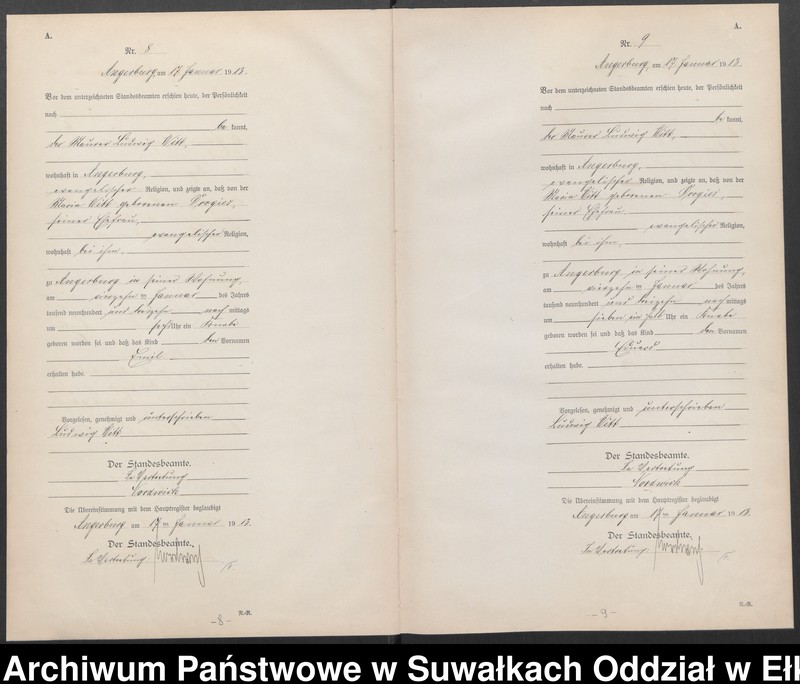 A.
Nr. 8
Angerburg, am 17. Januar 1913.
Vor dem unterzeichneten Standesbeamten erschien heute, der Persönlichkeit
nach
be kannt,
der Maurer Ludwig Witt,
wohnhaft in Angerburg,
evangelischer Religion, und zeigte an, daß von der
Maria Witt geborenen
seiner Ehefrau,
evangelischer Religion,
wohnhaft bei ihm,
zu Angerburg in seiner Wohnung,
am vierzehn ten Januar des Jahres
tausend neunhundert und dreizehn nach mittags
um sechs Uhr ein Knabe
geboren worden sei und daß das Kind den Vornamen
Emil
erhalten habe.
Vorgelesen, genehmigt und unterschrieben
Ludwig Witt
Der Standesbeamte.
In Vertretung
Die Übereinstimmung mit dem Hauptregister beglaubigt
Angerburg am 17 ten Januar 1913.
Der Standesbeamte.
In Vertretung
R.-R.
-8-
A.
Nr. 9
Angerburg, am 17. Januar 1913.
Vor dem unterzeichneten Standesbeamten erschien heute, der Persönlichkeit
nach
be kannt,
der Maurer Ludwig Witt,
wohnhaft in Angerburg,
evangelischer Religion, und zeigte an, daß von der
Maria Witt geborenen
seiner Ehefrau,
evangelischer Religion,
wohnhaft bei ihm,
zu Angerburg in seiner Wohnung,
am vierzehn ten Januar des Jahres
tausend neunhundert und dreizehn nach mittags
um sieben ein halb Uhr ein Knabe
geboren worden sei und daß das Kind den Vornamen
Eduard
erhalten habe.
Vorgelesen, genehmigt und unterschrieben
Ludwig Witt
Der Standesbeamte.
In Vertretung
Die Übereinstimmung mit dem Hauptregister beglaubigt
Angerburg am 17 ten Januar 1913.
Der Standesbeamte.
In Vertretung
R.-R.
-9-
Archiwum Państwowe w Suwałkach Oddział w Ełk